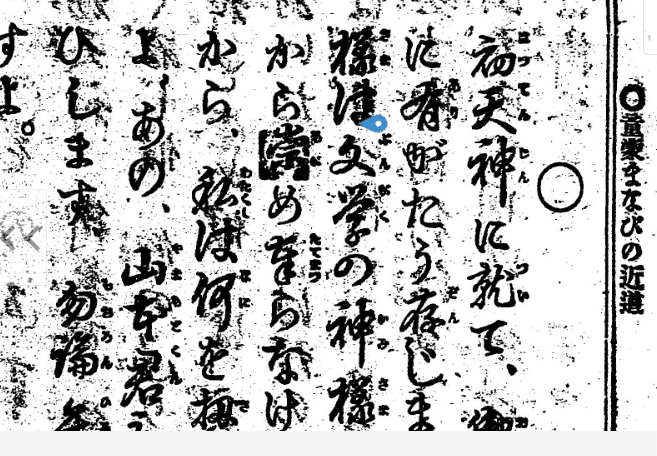 ●童蒙まなびの近道
初天神に就て、
に有がたう存じま
様は文学の神様
から崇め奉らなけ
から、私は何を
よ、あの、山本君
ひします、勿論
すよ。